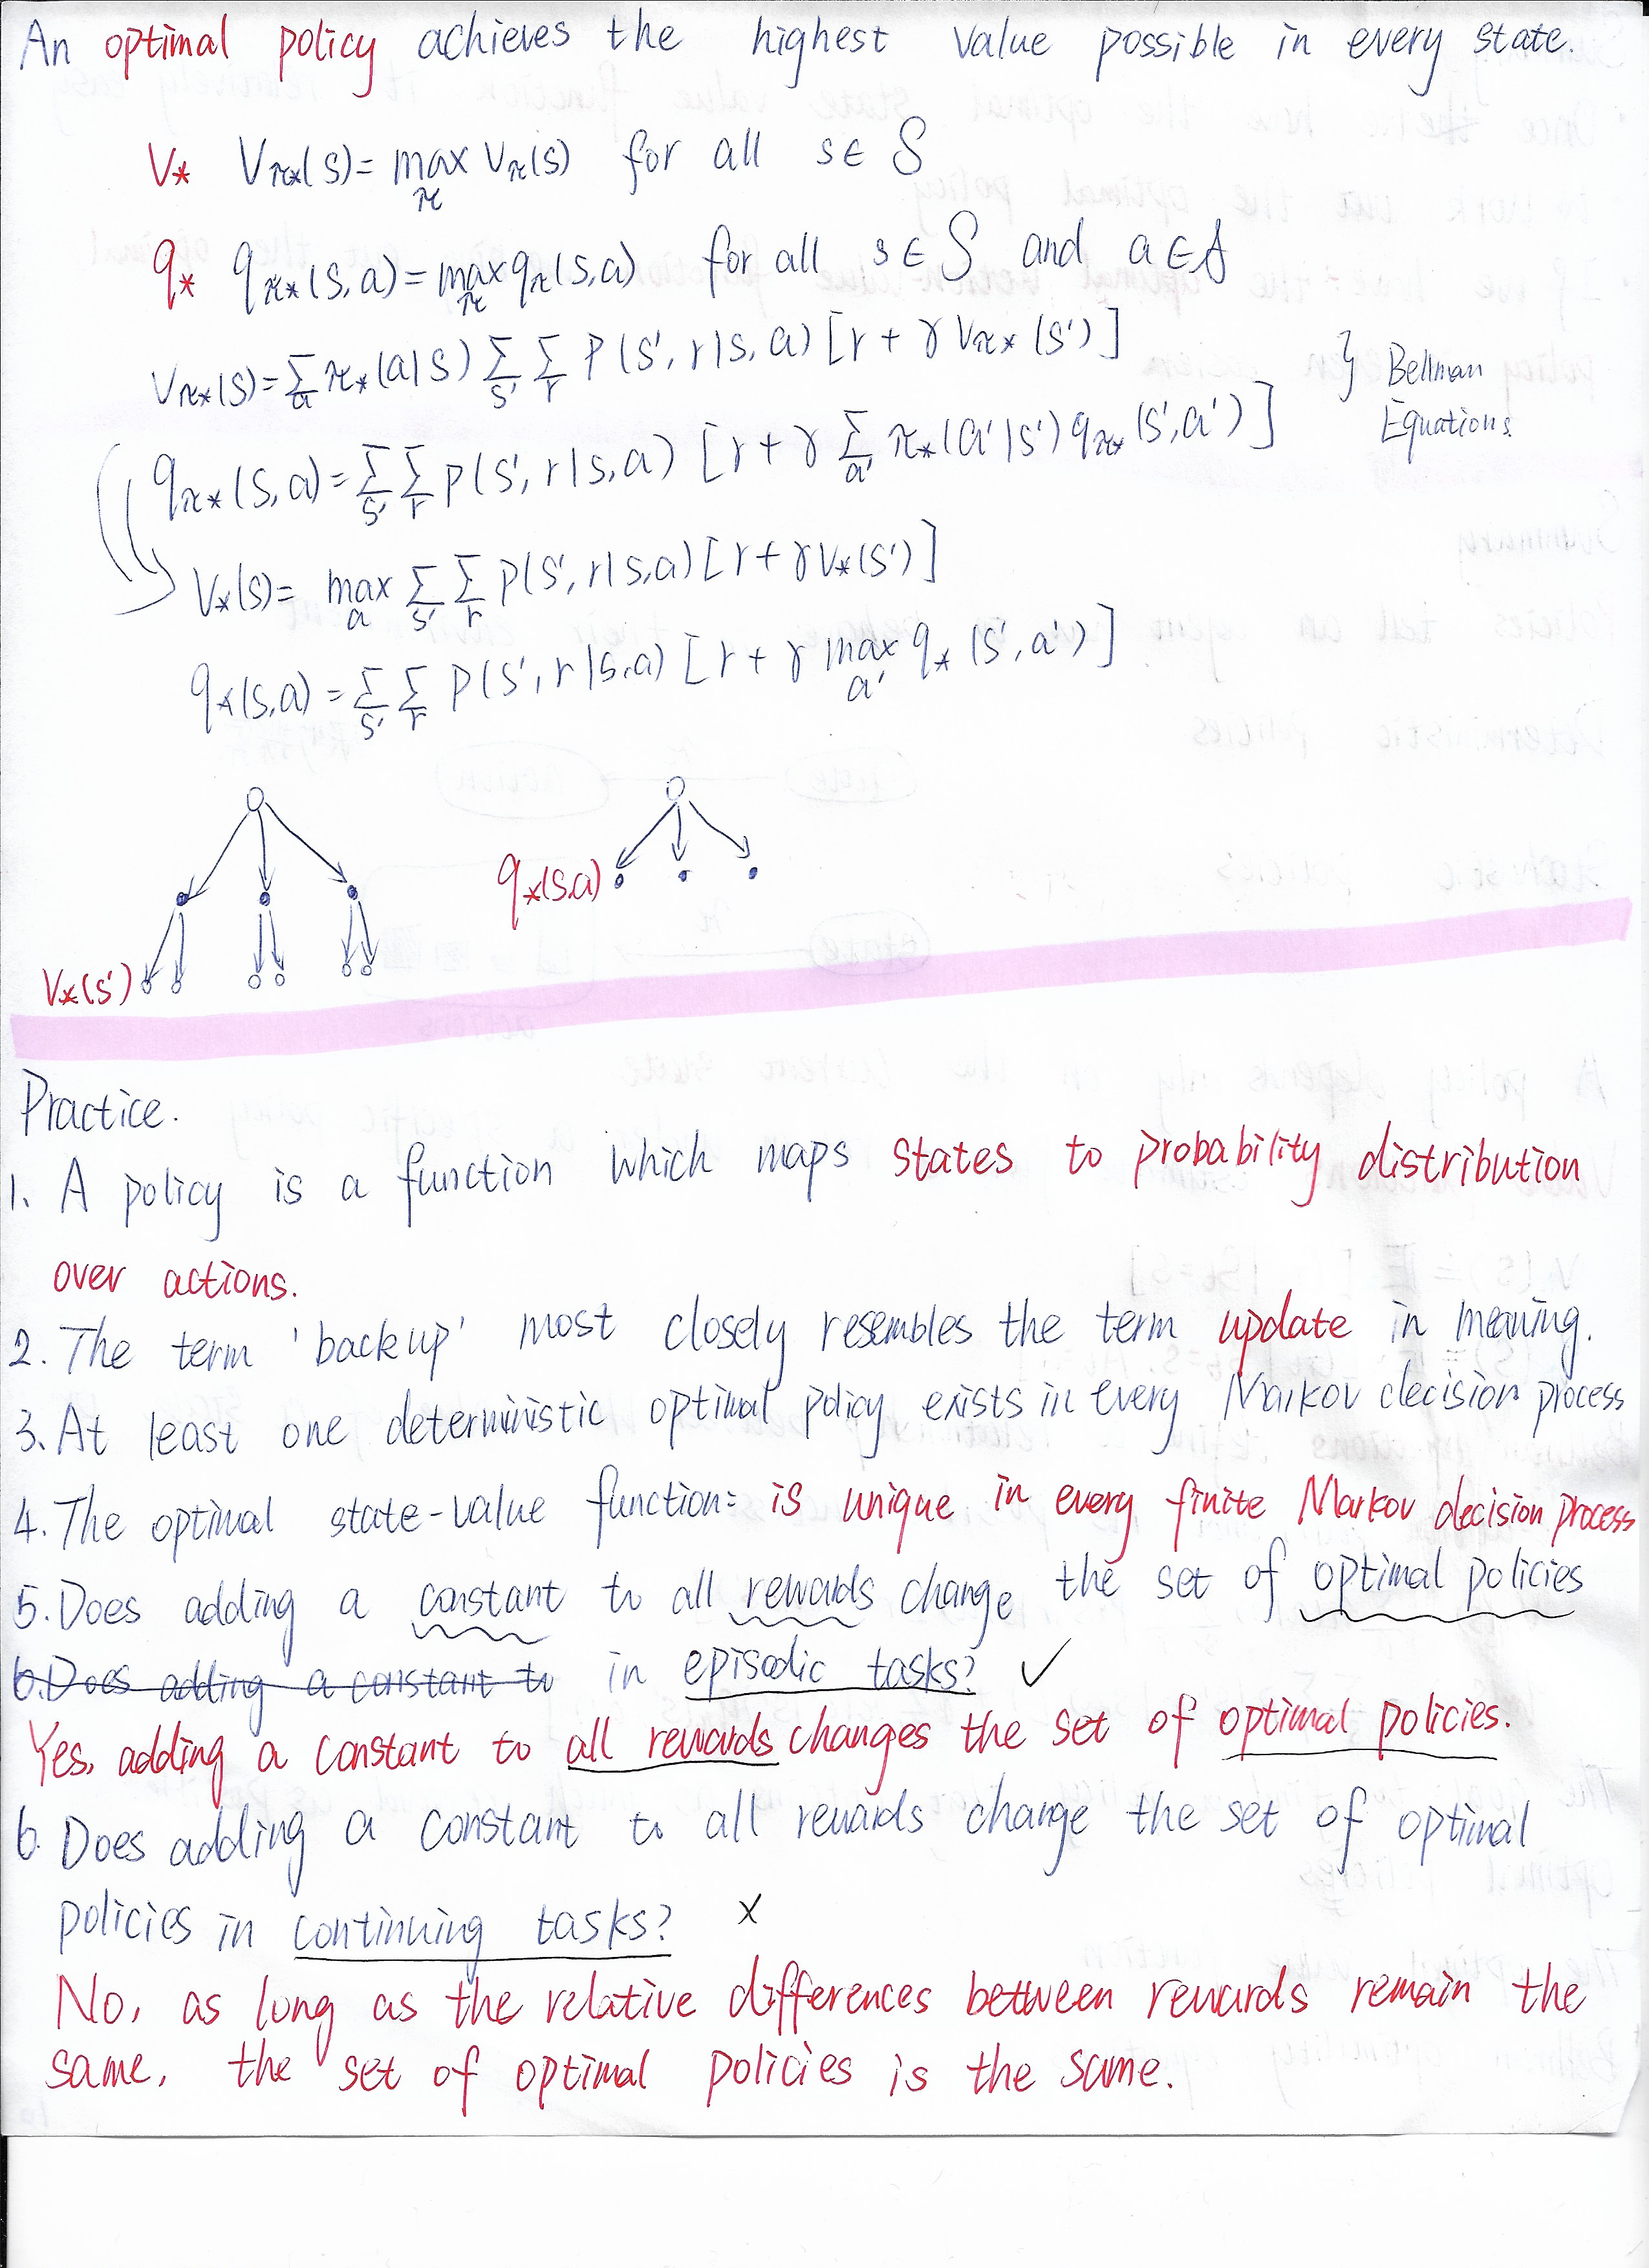 An optimal policy achieves the highest value possible in every state.
V* Vπ*(s) = max_π Vπ(s) for all s ∈ S
q* qπ*(s,a) = max_π qπ(s,a) for all s ∈ S and a ∈ A
Vπ*(s) = Σ_a π*(a|s) Σ_s' Σ_r P(s', r|s, a) [r + γ Vπ*(s')]
} Bellman
Equations
qπ*(s,a) = Σ_s' Σ_r P(s', r|s,a) [r + γ Σ_a' π*(a'|s') qπ*(s',a')]
V*(s) = max_a Σ_s' Σ_r P(s', r|s,a) [r + γ V*(s')]
q*(s,a) = Σ_s' Σ_r P(s', r|s,a) [r + γ max_a' q*(s', a')]
q*(s,a)
V*(s')
Practice.
1. A policy is a function which maps states to probability distribution
over actions.
2. The term 'backup' most closely resembles the term update in meaning.
3. At least one deterministic optimal policy exists in every Markov decision process
4. The optimal state-value function: is unique in every finite Markov decision process
5. Does adding a constant to all rewards change the set of optimal policies
6. Does adding a constant to in episodic tasks? ✓
Yes, adding a constant to all rewards changes the set of optimal policies.
6. Does adding a constant to all rewards change the set of optimal
policies in continuing tasks? x
No, as long as the relative differences between rewards remain the
same, the set of optimal policies is the same.